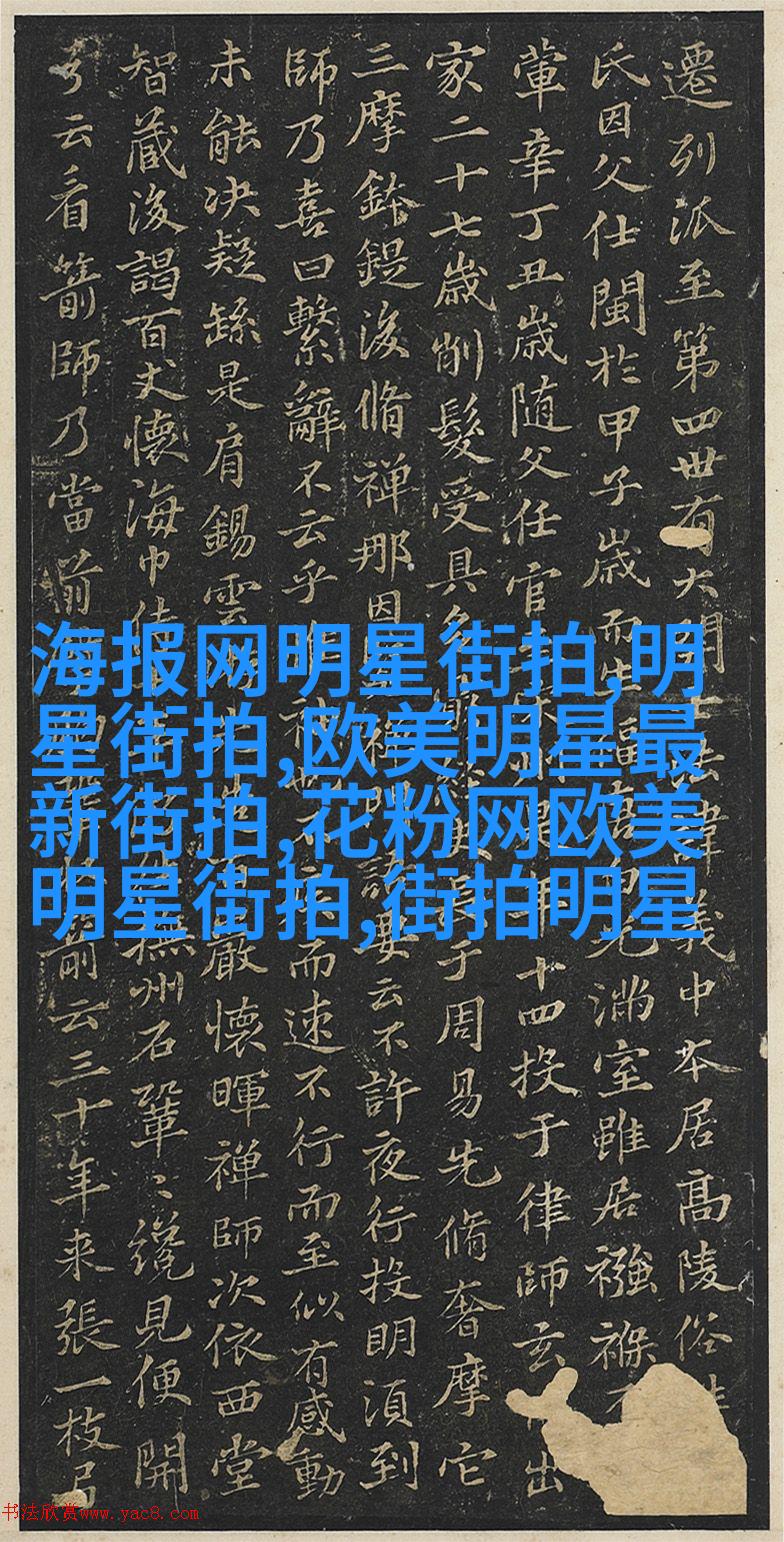 遷列派至第四世有大 義中本居高陵俗
氏因父仕閩於甲子歲而生 光滿室雖居襁褓
葷辛丁丑歲随父任官 十四投于律師玄 出
家二十七歲削髮受具 于周易先脩奢摩它
三摩鉢鍉後脩禅那因 云不許夜行投明湏到
師乃喜曰繫辭不云乎 而速不行而至似有感動
未能决疑繇是肩錫雲 巖懷暉禅師次依西堂
智蔵後謁百丈懷海巾 撫州石鞏〻纔見便開
弓云看箭師乃當前 云三十年来張一枝弓
海报网明星街拍,明
星街拍,欧美明星最
新街拍,花粉网欧美
明星街拍,街拍明星
书法欣赏www.yac8.com